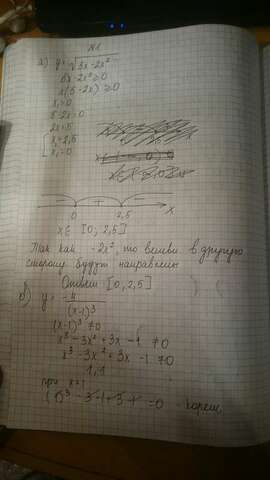 №1
а) y = √3x-2x²
6x-2x² ≥ 0
x(5-2x) ≥ 0
x₁=0
5-2x=0
2x=5
x₂=2,5
x₁=0
- + -
0 2,5 x
x∈ [0; 2,5]
Так как -2x², то ветви в другую
сторону будут направлены
Ответ: [0, 2,5]
б) y = -4/(x-1)³
(x-1)³ ≠ 0
x³-3x²+3x-1 ≠ 0
x³-3x²+3x-1 ≠ 0
1,1
при x=1
=0 - корень